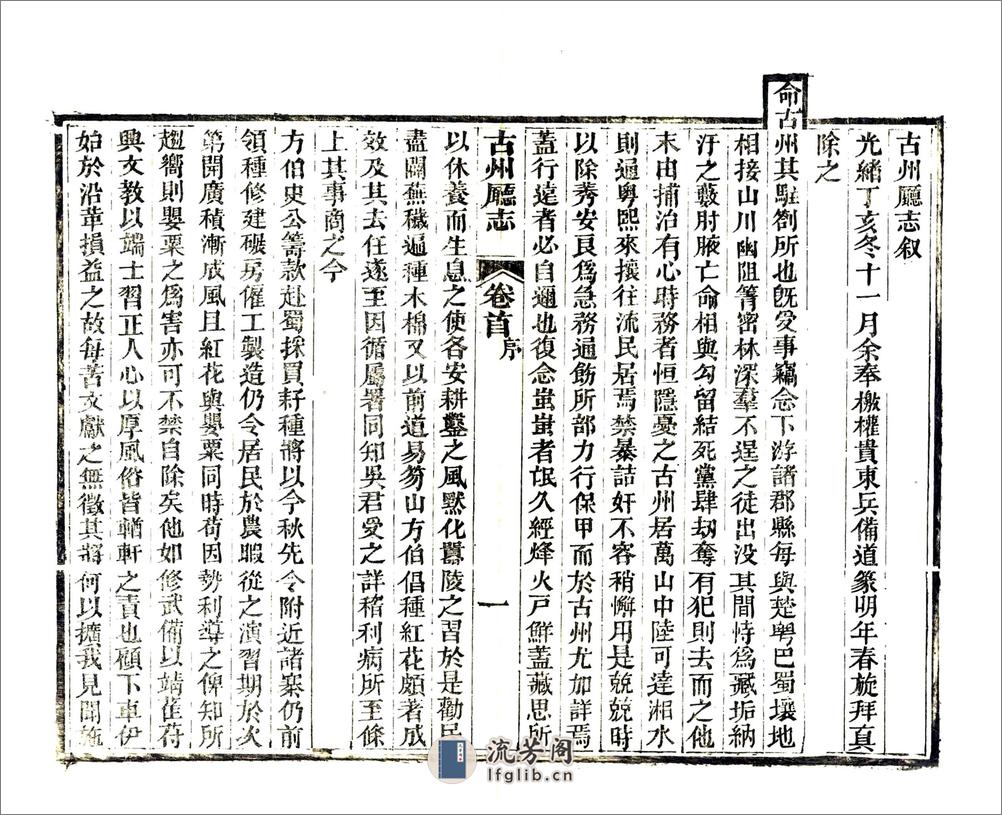 古州廳志叙
光緒丁亥冬十一月余奉檄權貴東兵備道篆明年春旋拜真
除之
命古州其駐劄所也旣受事竊念下游諸郡縣每與楚粤巴蜀壤地
相接山川幽阻箐密林深羣不逞之徒出没其間恃爲藏垢納
汙之藪肘腋亡命相與勾留結死黨肆刧奪有犯則去而之他
末由捕治有心時務者恒隱憂之古州居萬山中陸可達湘水
則通粤熙來攘往流民居焉禁暴詰奸不容稍懈用是兢兢時
以除莠安良爲急務通飭所部力行保甲而於古州尤加詳焉
蓋行遠者必自邇也復念蚩蚩者氓久經烽火戸鮮蓋藏思所
古州廳志
卷首
序
一
以休養而生息之使各安耕鑿之風默化囂陵之習於是勸民
盡闢蕪穢遍種木棉又以前道易笏山方伯倡種紅花頗著成
效及其去任遂至因循屬署同知吳君受之詳稽利病所至條
上其事商之今
方伯史公籌款赴蜀採買籽種將以今秋先令附近諸寨仍前
領種修建碾房僱工製造仍令居民於農暇從之演習期於次
第開廣積漸成風且紅花與罌粟同時苟因勢利導之俾知所
趨嚮則罌粟之爲害亦可不禁自除矣他如修武備以靖萑苻
興文教以端士習正人心以厚風俗皆輶軒之責也顧下車伊
始於沿革損益之故每苦文獻之無徵其將何以擴我見聞施
流芳阁
lfglib.cn